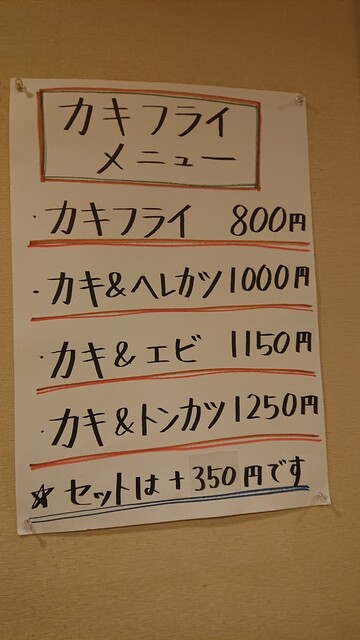 カキフライ
メニュー
・カキフライ 800円
・カキ&ヘレカツ 1000円
・カキ&エビ 1150円
・カキ&トンカツ 1250円
☆ セットは+350円です